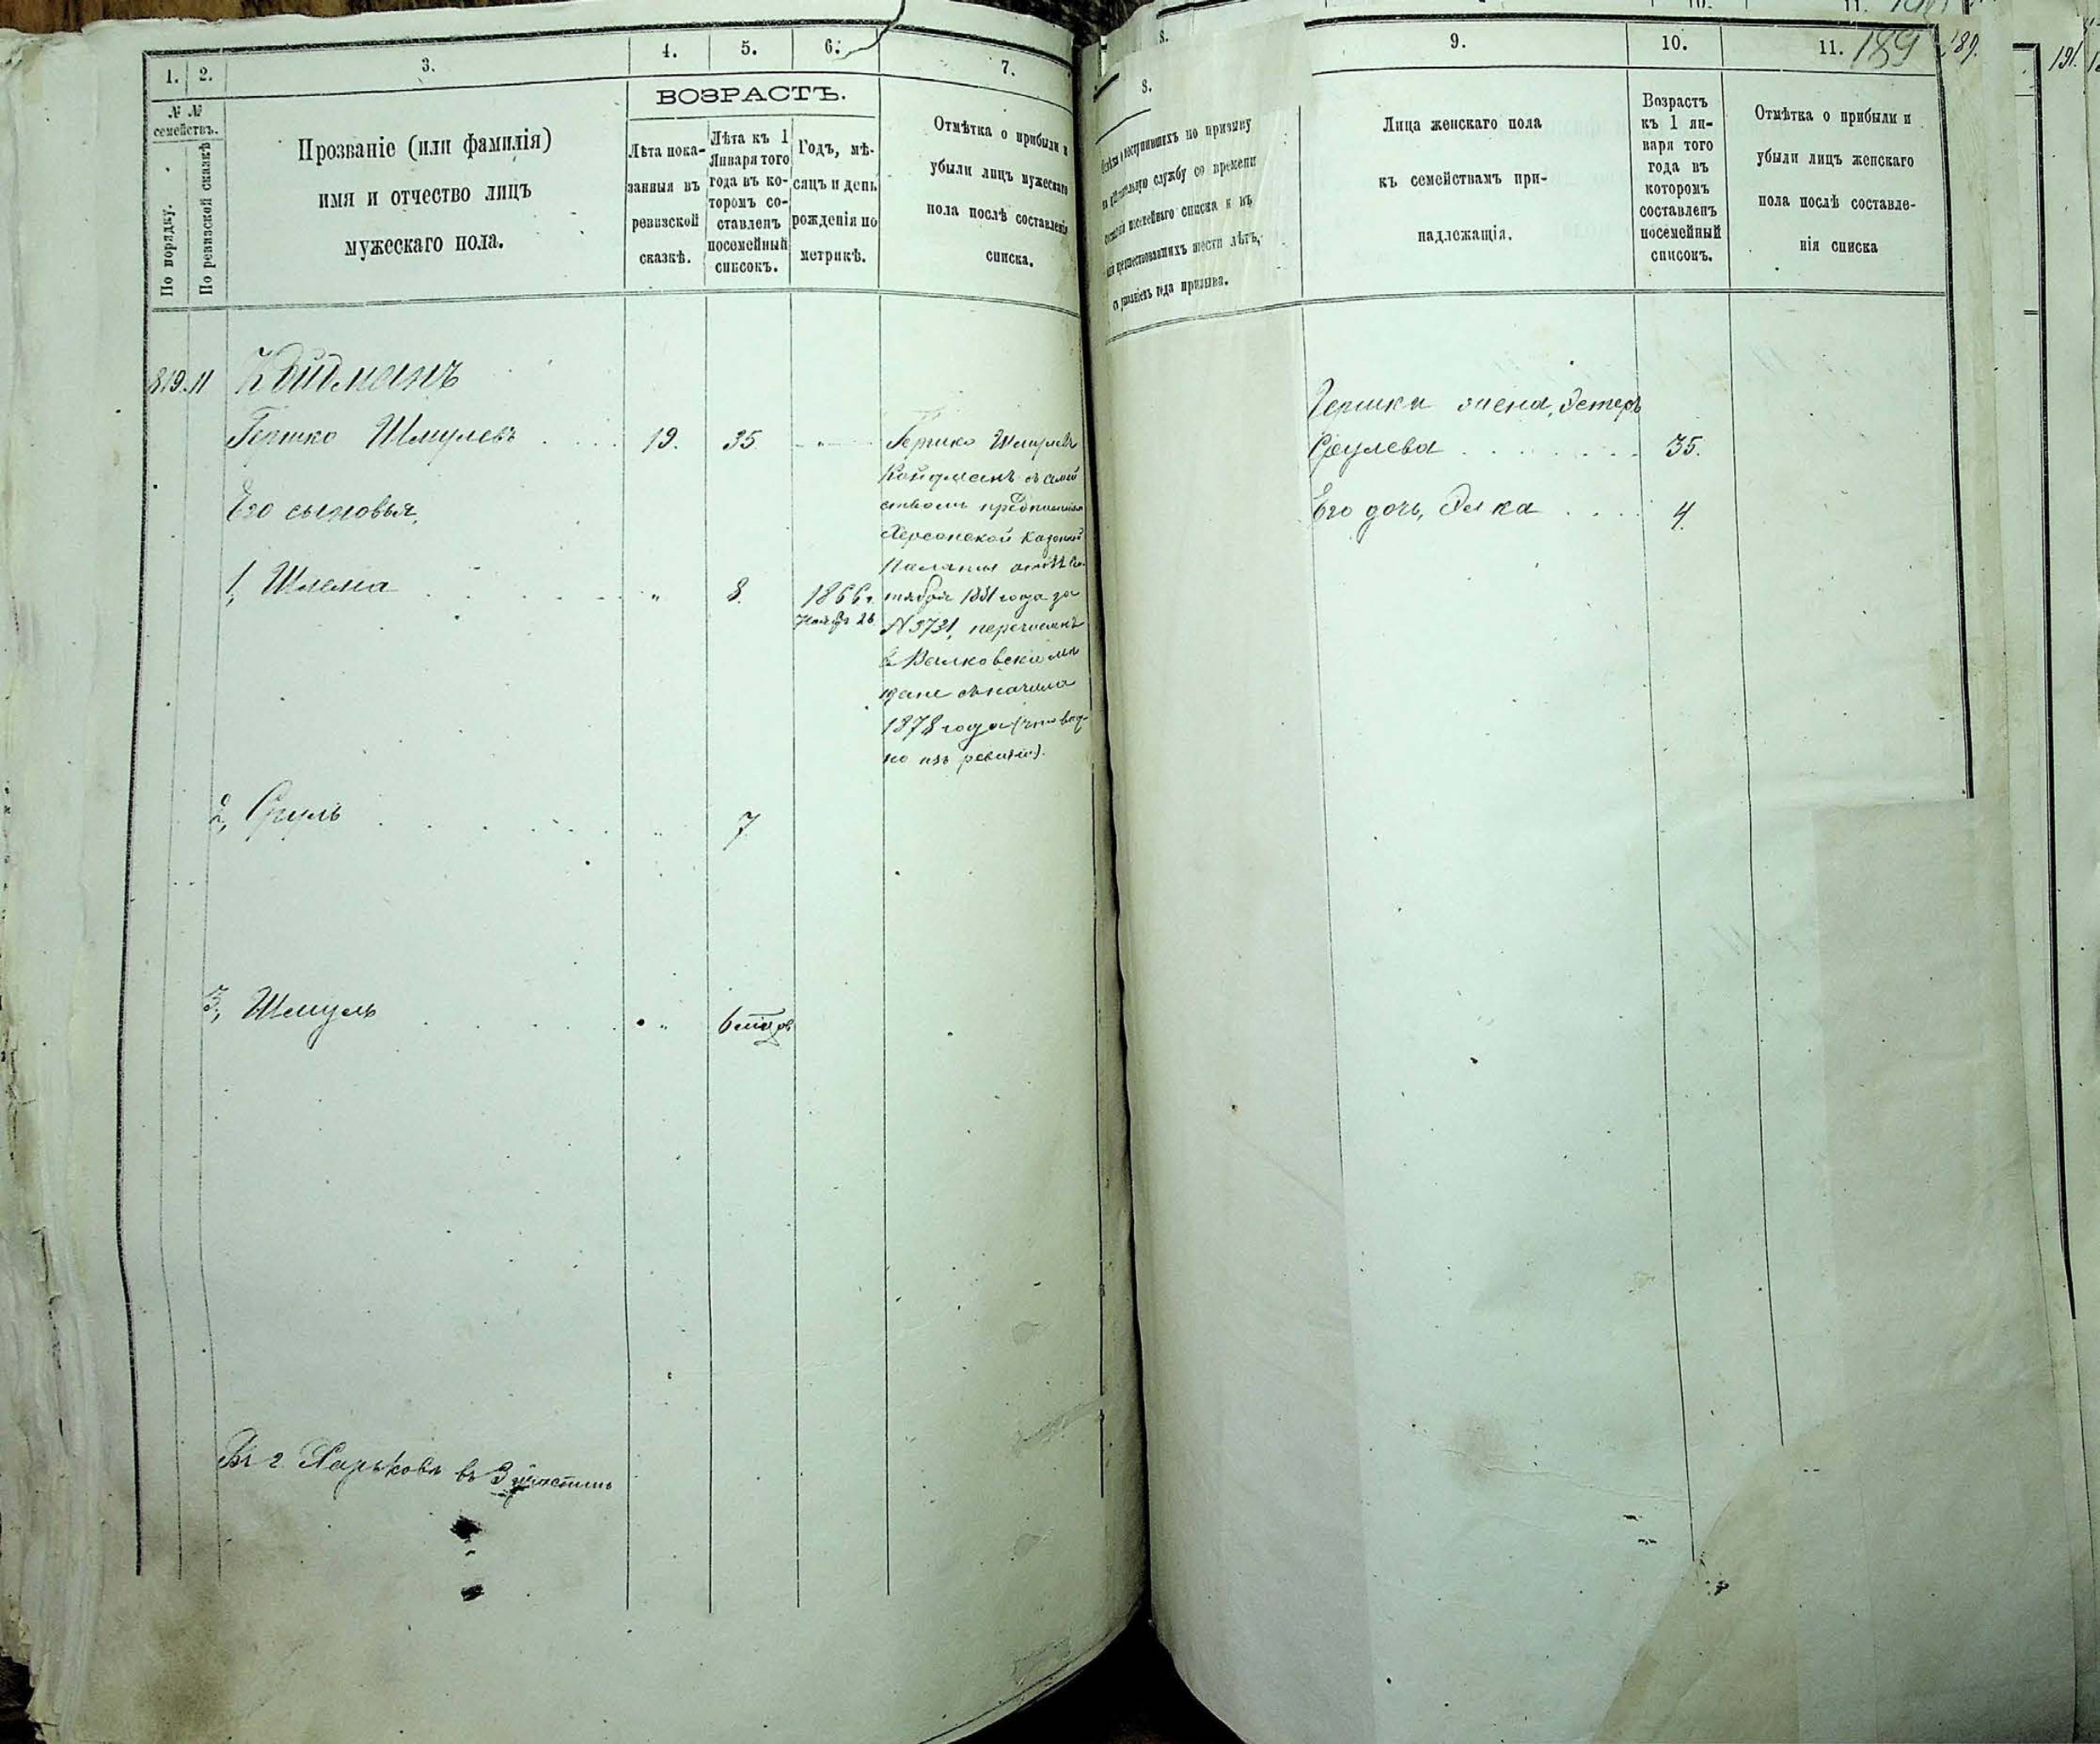 1.
2.
3.
4.
5.
6.
7.
№ №
семействъ.
По порядку.
По ревизской сказкѣ
Прозваніе (или фамилія)
имя и отчество лицъ
мужескаго пола.
ВОЗРАСТЪ.
Лѣта пока-
занныя въ
ревизской
сказкѣ.
Лѣта къ 1
Января того
года въ ко-
торомъ со-
ставленъ
посемейный
списокъ.
Годъ, мѣ-
сяцъ и день
рожденія по
метрикѣ.
Отмѣтка о прибыли и
убыли лицъ мужескаго
пола послѣ составленія
списка.
819. 11 Койдманъ
Гершко Шмулевъ 19. 35
Его сыновья,
1, Шлема " 8. 1866 г.
Ноября 26
2, Сруль " 7
3, Шмуль " 6 мѣ
Гершко Шмулевъ
Койдманъ съ семей
ствомъ предписаніем
Херсонской Казенной
Палаты отъ
тября 1881 года за
№ 3731, перечисленъ
въ Валковские мѣ
щане съ начала
1878 года (что вид-
но изъ ревизіи).
Въ г Харьковѣ въ 3 участкѣ
8.
8.
поступившихъ по призыву
службу со времени
посемейнаго списка и въ
предшествовавшихъ шести лѣтъ,
съ указаніемъ года призыва.
9.
10.
11.
189
189.
191.
Лица женскаго пола
къ семействамъ при-
надлежащія.
Возрастъ
къ 1 ян-
варя того
года въ
которомъ
составленъ
посемейный
списокъ.
Отмѣтка о прибыли и
убыли лицъ женскаго
пола послѣ составле-
нія списка
Гершки жена, Эстеръ
Срулева 35.
Его дочь, Элка 4.